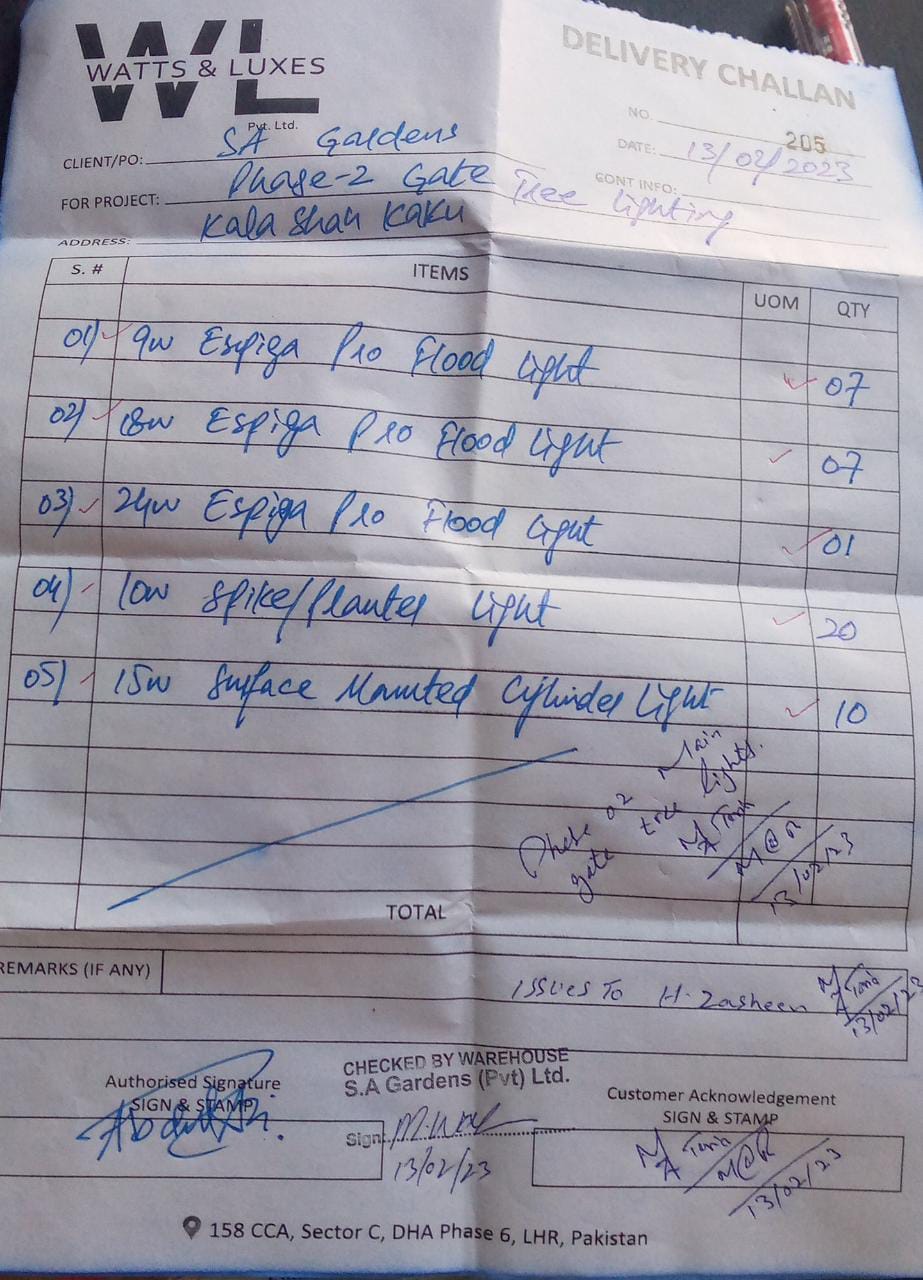 WL
WATTS & LUXES
Pvt. Ltd.
DELIVERY CHALLAN
NO. 205
DATE: 13/02/2023
CLIENT/PO: SA Gardens
CONT INFO:
FOR PROJECT: Phase-2 Gate Tree Lighting
ADDRESS: Kala Shah Kaku
S. # ITEMS UOM QTY
01) 9w Espiga Pro Flood Light 07
02) 18w Espiga Pro Flood Light 07
03) 24w Espiga Pro Flood Light 01
04) 10w Spike/Planter Light 20
05) 15w Surface Mounted Cylinder Light 10
Phase 02 Main
gate tree lights.
M@R
13/02/23
TOTAL
REMARKS (IF ANY)
Issues To H.
13/02/23
Authorised Signature
SIGN & STAMP
CHECKED BY WAREHOUSE
S.A Gardens (Pvt) Ltd.
Sign:
13/02/23
Customer Acknowledgement
SIGN & STAMP
M@R
13/02/23
158 CCA, Sector C, DHA Phase 6, LHR, Pakistan